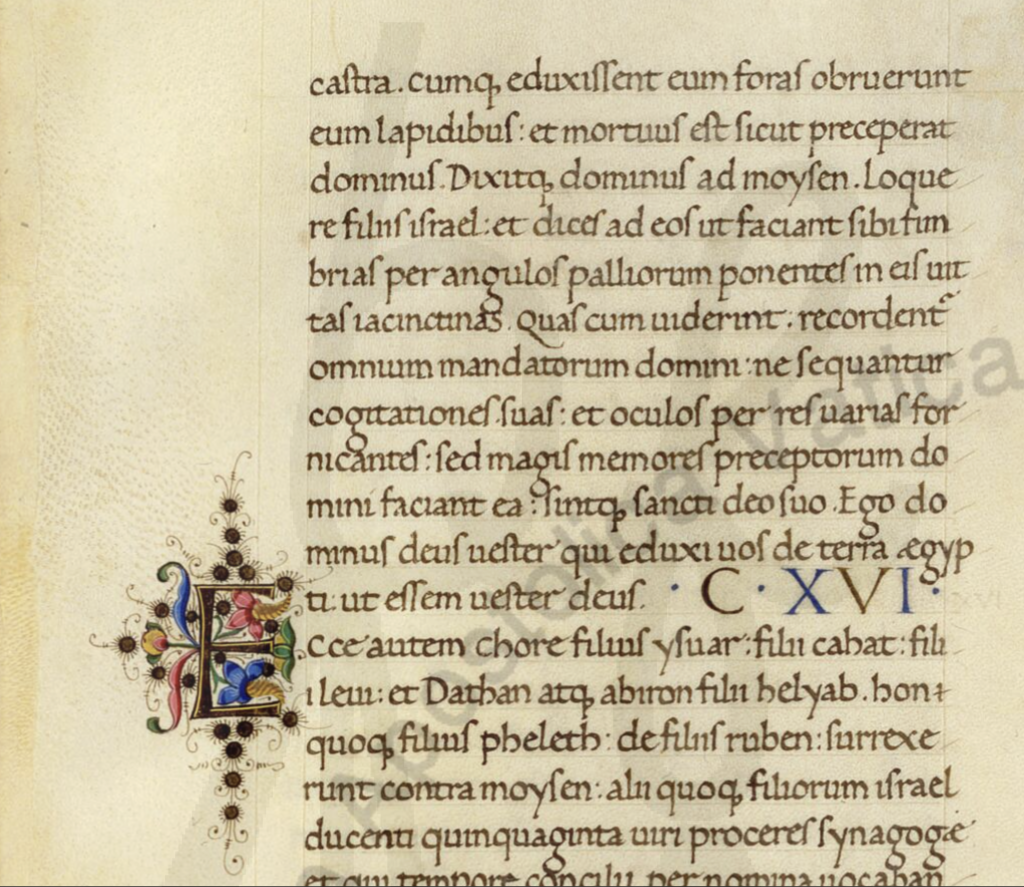 castra. cumq, eduxissent eum foras obruerunt
eum lapidibus: et mortuus est sicut preceperat
dominus. Dixitq, dominus ad moysen. Loque
re filiis israel: et dices ad eos ut faciant sibi fim
brias per angulos palliorum ponentes in eis uit
tas iacinctinas. Quas cum uiderint. recordent᷑
omnium mandatorum domini: ne sequantur
cogitationes suas: et oculos per res uarias for
nicantes: sed magis memores preceptorum do
mini faciant ea: sintq, sancti deo suo. Ego do
minus deus uester qui eduxi uos de terra ægyp
ti: ut essem uester deus. · C · XVI ·
Ecce autem chore filius ysuar: filii cahat: fili
i leui: et Dathan atq, abiron filii helyab. hon
quoq, filius pheleth: de filiis ruben: surrexe
runt contra moysen: alii quoq, filiorum israel
ducenti quinquaginta uiri proceres synagogæ
et qui tempore concilii per nomina uocaban